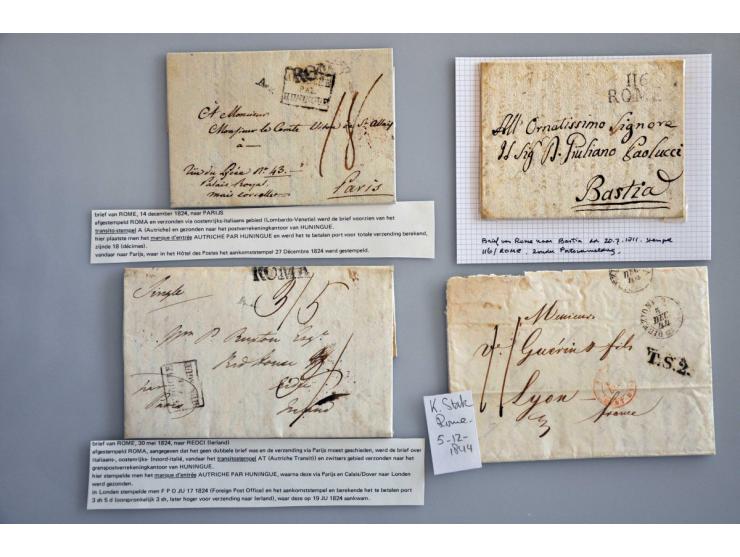 ROMA
AUTRICHE
PAR
HUNINGUE
A Monsieur
Monsieur le Comte
à
Rue du Lycée No. 43.
Palais Royal
Paris
brief van ROME, 14 december 1824, naar PARIJS
afgestempeld ROMA en verzonden via oostenrijks-italiaans gebied (Lombardo-Venetie) werd de brief voorzien van het
transito-stempel A (Autriche) en gezonden naar het postverrekeningkantoor van HUNINGUE.
hier plaatste men het marque d'entrée AUTRICHE PAR HUNINGUE en werd het te betalen port voor totale verzending berekend,
zijnde 18 (décimes).
vandaar naar Parijs, waar in het Hôtel des Postes het aankomststempel 27 Décembre 1824 werd gestempeld.
116
ROME
All' Ornatissimo Signore
Il Sig. Giuliano Paolucci
Bastia
Brief van Rome naar Bastia dd 20.7.1811. stempel
116/ROME. zonder
ROMA
Single
3/5
Esqr
Red House
par
Paris
AUTRICHE
PAR
HUNINGUE
brief van ROME, 30 mei 1824, naar REDCI (Ierland)
afgestempeld ROMA, aangegeven dat het geen dubbele brief was en de verzending via Parijs moest geschieden, werd de brief over
italiaans-, oostenrijks- (noord-Italië, vandaar het transitostempel AT (Autriche Transit) en zwitsers gebied verzonden naar het
grenspostverrekeningkantoor van HUNINGUE.
hier stempelde men het marque d'entrée AUTRICHE PAR HUNINGUE, waarna deze via Parijs en Calais/Dover naar Londen
werd gezonden.
in Londen stempelde men F P O JU 17 1824 (Foreign Post Office) en het aankomststempel en berekende het te betalen port
3 sh 5 d (oorspronkelijk 3 sh, later hoger voor verzending naar Ierland), waar deze op 19 JU 1824 aankwam.
DIREZIONE
DEC
44
T.S.2.
Messieurs
Ve. Guérin & fils
Lyon
france
K. Stuk
Rome.
5-12-
1844